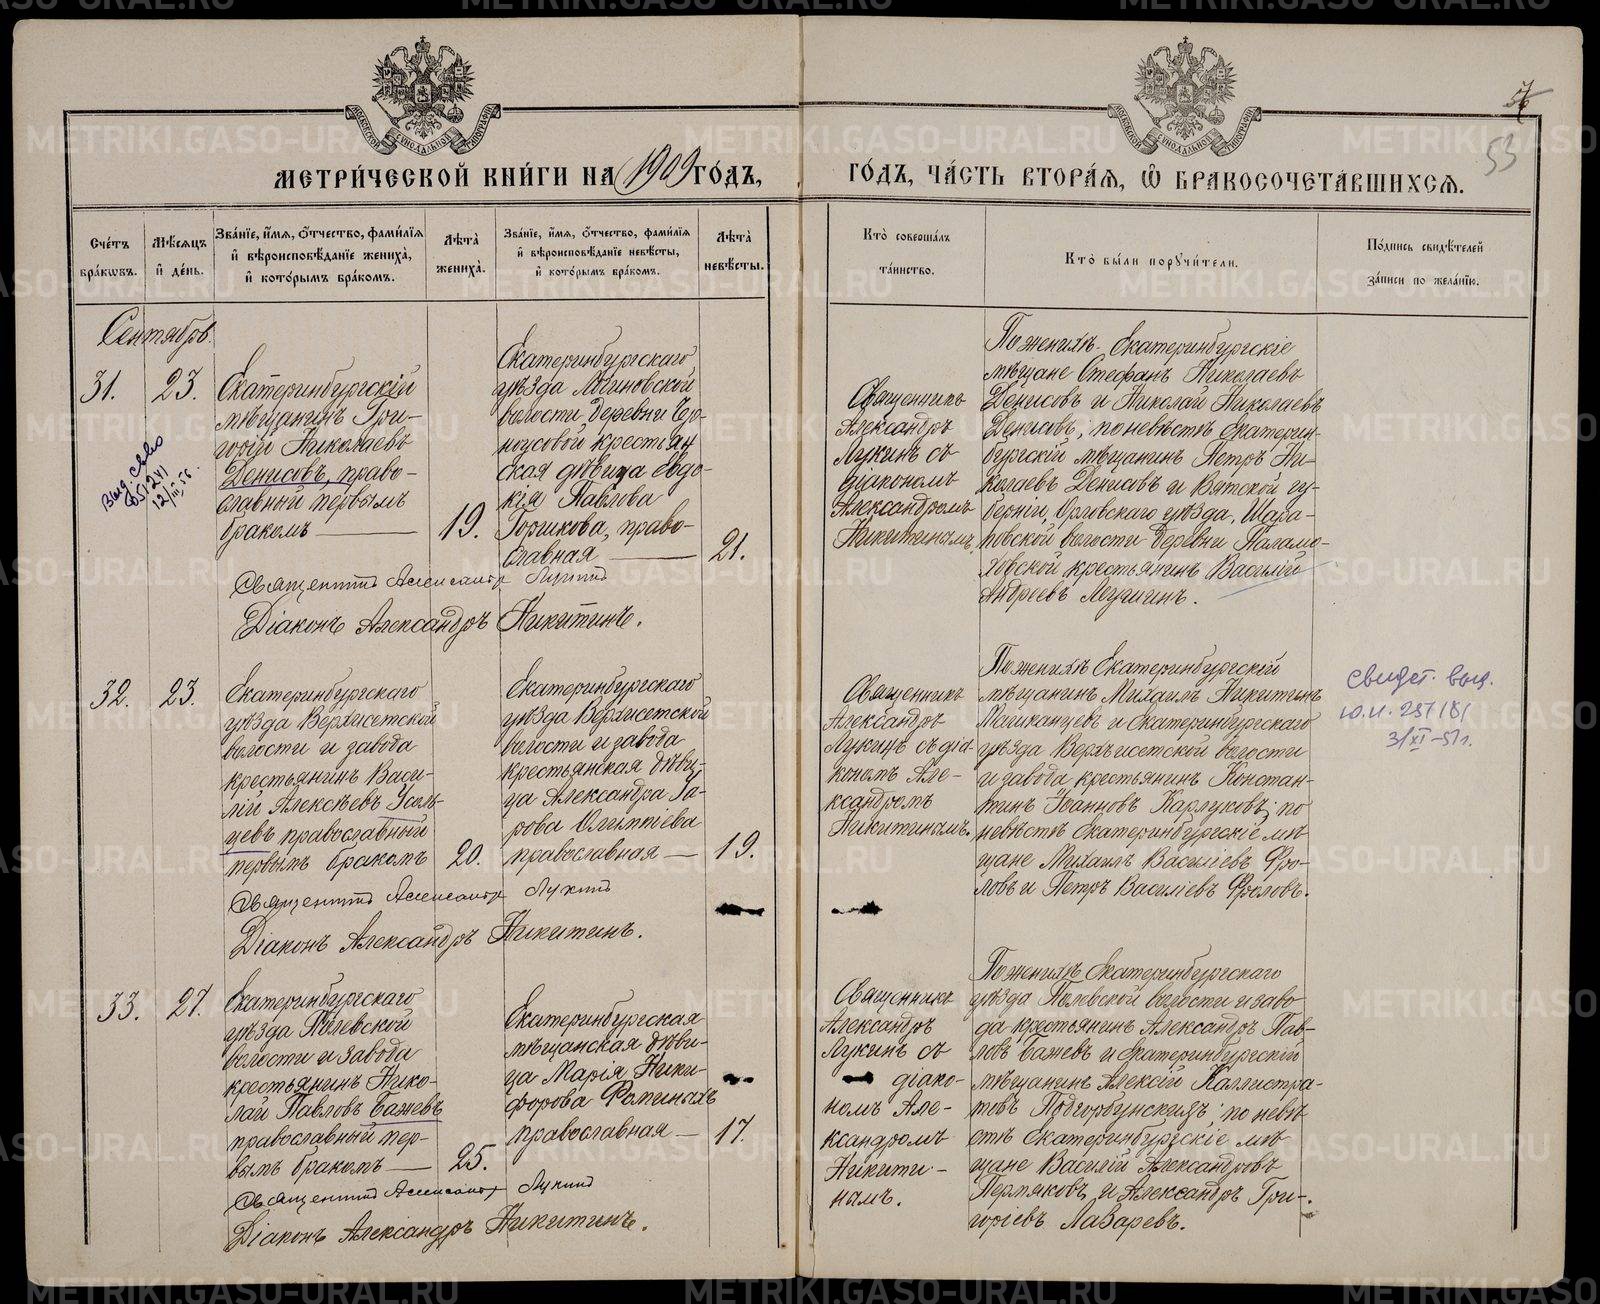 МЕТРИ́ЧЕСКОЙ КНИ́ГИ НА 1909 ГО́ДЪ,
ГО́ДЪ, ЧА́СТЬ ВТОРА́Я, Ѽ БРАКОСОЧЕТА́ВШИХСЯ.
57
53
Сче́тъ бра́кѡвъ.
Мѣ́сяцъ и҆ де́нь.
Зва́нїе, и҆́мѧ, ѻ҆́тчество, фами́лїѧ и҆ вѣроисповѣ́данїе жениха̀, и҆ кото́рымъ бра́комъ.
Лѣ́та жениха̀.
Зва́нїе, и҆́мѧ, ѻ҆́тчество, фами́лїѧ и҆ вѣроисповѣ́данїе невѣ́сты, и҆ кото́рымъ бра́комъ.
Лѣ́та невѣ́сты.
Кто̀ соверша́лъ та́инство.
Кто̀ бы́ли порꙋчи́тели.
По́дпись свидѣ́телей за́писи по жела́нїю.
Сентябрь.
31.
23.
Екатеринбургскій
мѣщанинъ Гри-
горій Николаевъ
Денисовъ, право-
славный первымъ
бракомъ
19.
Екатеринбургскаго
уѣзда Логиновской
волости деревни Чер-
ноусовой крестьян
ская дѣвица Евдо-
кія Павлова
Горшкова, право-
славная
21.
Священникъ
Александръ
Лукинъ съ
діакономъ
Александромъ
Никитинымъ.
По женихѣ Екатеринбургскіе
мѣщане Стефанъ Николаевъ
Денисовъ и Николай Николаевъ
Денисовъ, по невѣстѣ Екатерин-
бургскій мѣщанинъ Петръ Ни-
колаевъ Денисовъ и Вятской гу-
берніи, Орловскаго уѣзда,
волости деревни
крестьянинъ Василій
Андреевъ
Выд. св-во
12/III 56.
Священникъ Александръ Лукинъ
Діаконъ Александръ Никитинъ.
32.
23.
Екатеринбургскаго
уѣзда Верхисетской
волости и завода
крестьянинъ Васи-
лій Алексѣевъ Усоль-
цевъ православный
первымъ бракомъ
20.
Екатеринбургскаго
уѣзда Верхисетской
волости и завода
крестьянская дѣви-
ца Александра Га-
врова Олимпіева
православная
19.
Священникъ
Александръ
Лукинъ съ діа-
кономъ Але-
ксандромъ
Никитинымъ.
По женихѣ Екатеринбургскій
мѣщанинъ Михаилъ Никитинъ
и Екатеринбургскаго
уѣзда Верхъисетской волости
и завода крестьянинъ Констан-
тинъ Іоанновъ Карлуковъ; по
невѣстѣ Екатеринбургскіе мѣ
щане Михаилъ Василіевъ Фро-
ловъ и Петръ Василіевъ Фроловъ.
свидет. выд.
31/XI-51г.
Священникъ Александръ Лукинъ
Діаконъ Александръ Никитинъ.
33.
27.
Екатеринбургскаго
уѣзда Полевской
волости и завода
крестьянинъ Нико-
лай Павловъ Бажевъ
православный пер-
вымъ бракомъ
25.
Екатеринбургская
мѣщанская дѣви-
ца Марія Ники-
форова Фоминыхъ
православная
17.
Священникъ
Александръ
Лукинъ съ
діако-
номъ Але-
ксандромъ
Никити-
нымъ.
По женихѣ Екатеринбургскаго
уѣзда Полевской волости и заво
да крестьянинъ Александръ Пав-
ловъ Бажевъ и Екатеринбургскій
мѣщанинъ Алексій Каллистра-
товъ Подгорбунскихъ; по невѣ
стѣ Екатеринбургскіе мѣ
щане Василій Александровъ
Пермяковъ и Александръ Гри-
горіевъ Лазаревъ.
Священникъ Александръ Лукинъ
Діаконъ Александръ Никитинъ.
METRIKI.GASO-URAL.RU